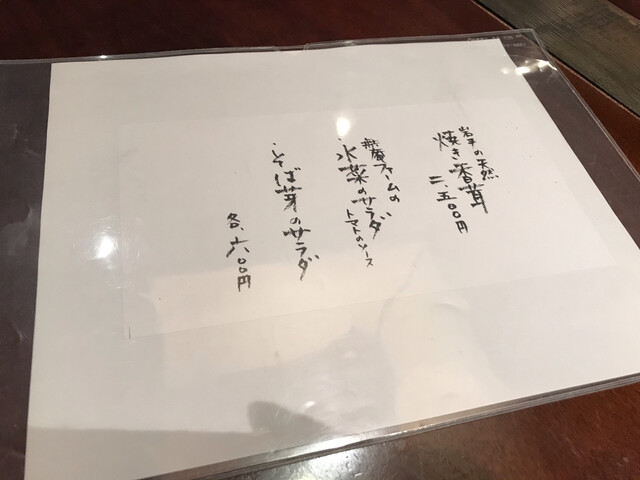 岩手の天然
焼き香茸
二、五〇〇円
無庵ファームの
・水菜のサラダ
トマトのソース
・そば芽のサラダ
各、六〇〇円